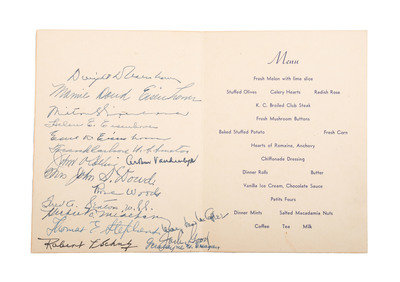 Dwight D. Eisenhower
Mamie Doud Eisenhower
Milton S. Eisenhower
Helen E. Eisenhower
Earl
John Arthur Vandenberg
Mrs. John S. Doud
Rose Woods
W.
Thomas E. Stephens
Robert L. Schulz
Menu
Fresh Melon with lime slice
Stuffed Olives Celery Hearts Radish Rose
K. C. Broiled Club Steak
Fresh Mushroom Buttons
Baked Stuffed Potato Fresh Corn
Hearts of Romaine, Anchovy
Chiffonade Dressing
Dinner Rolls Butter
Vanilla Ice Cream, Chocolate Sauce
Petits Fours
Dinner Mints Salted Macadamia Nuts
Coffee Tea Milk